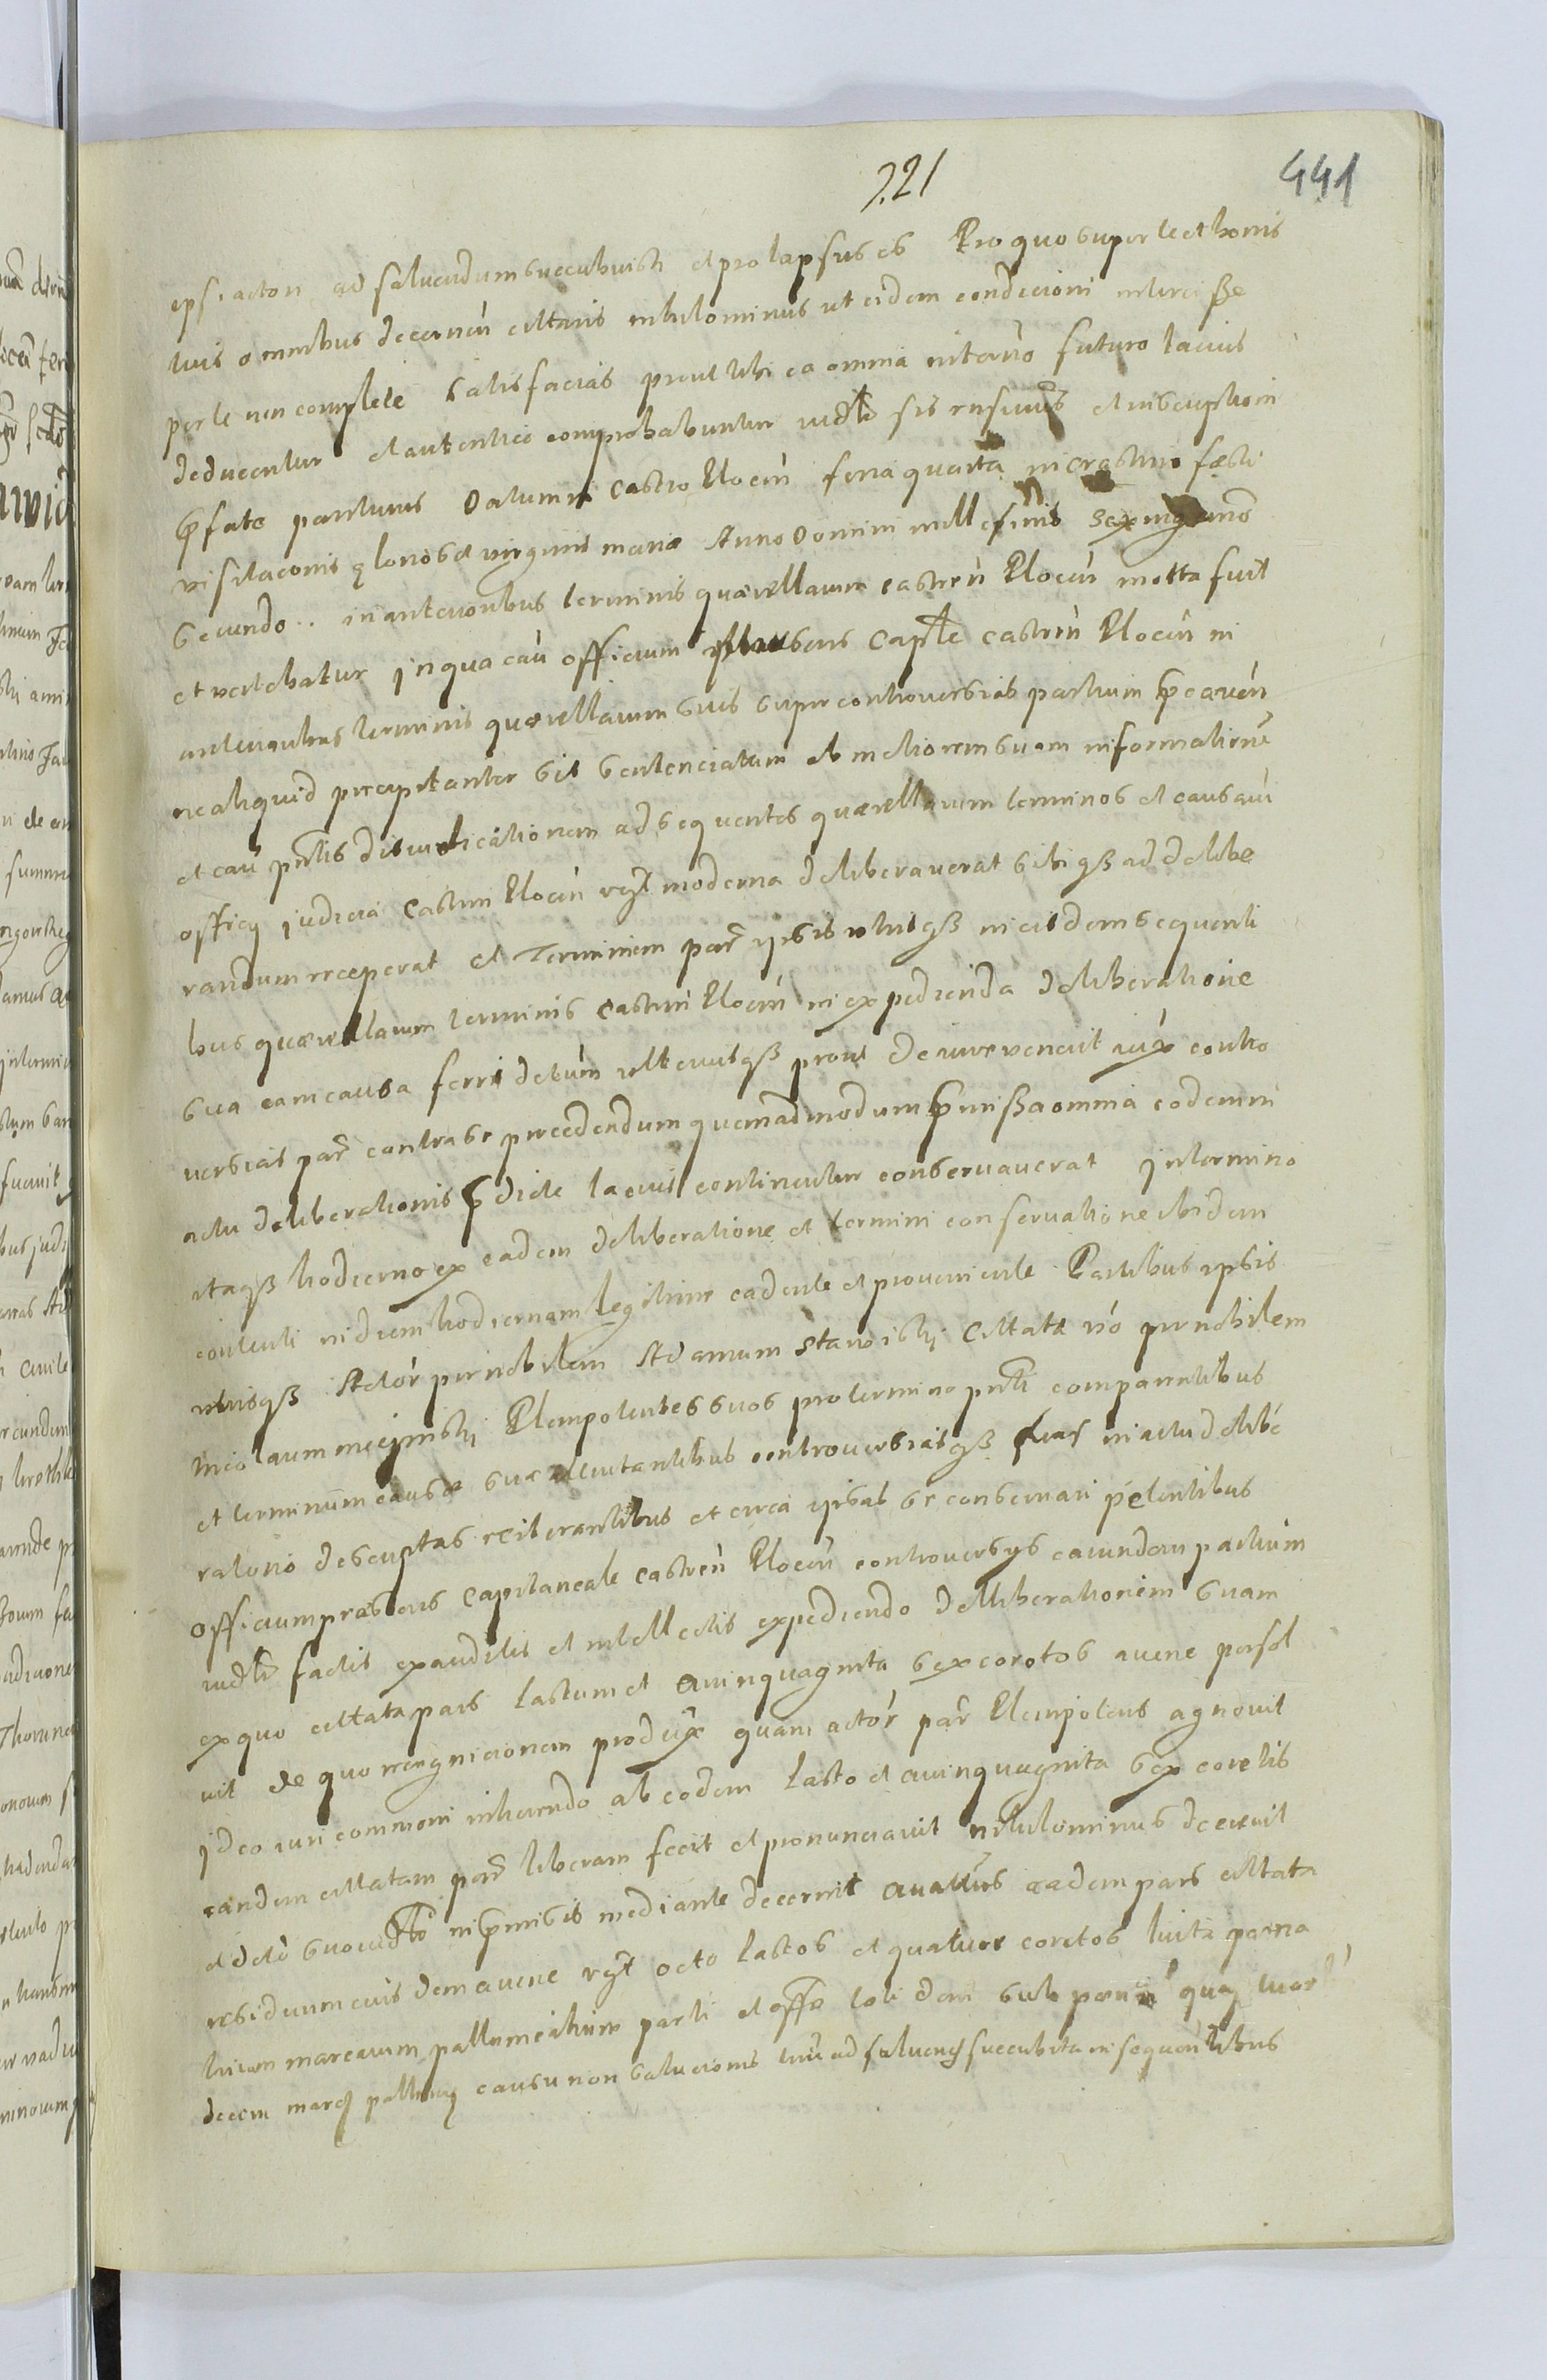 721
441
ipsi actori ad salvendum succubuisti et prolapsus es Pro quo super te et bonis
tuis omnibus decernen citaris nihilominus ut eidem condicioni intercisse
per te non complete satisfacias prout tibi ea omnia in termino futuro lacius
deducentur et autentice comprobabuntur iudlr sis rnsurus et inscriptioni
pfate pariturus Datum in castro Plocen feria quarta in crastino fæsti
visitaconis glorosæ virginis mariæ Anno Domini millesimo sexingmo
secundo .. in anterioribus terminis quærellarum castren Plocen motta fuit
et vertebatur In qua cau officium præsens Caplle castren Plocen in
anterioribus terminis quærellarum suis super controversias partium pcauen
ne aliquid precipitanter sit sentenciatum ob meliorem suam informatione
et cau pntis disiudicationem ad sequentes quærellarum terminos et causaru
officy judicia Castren Plocen vigt moderna deliberauerat sibi qß ad delibe
randum receperat et Terminum par ipsis utrisqß in eisdem sequenti
bus quærellarum terminis castren Plocen in expedienda deliberatione
sua eam causa ferri detum ulteriusqß prout de iure venerit iux contro
versias par contra se procedendum quemadmodum pmissa omnia eodem in
actu deliberationis pdicte lacius continentur conservaverat In termino
itaqß hodierno ex eadem deliberatione et termini conservatione ibidem
contenti in diem hodiernam legitime cadente et proveniente Partibus ipsis
utrisqß Actor per nobilem Adamum stanoisky Cittata vo per nobilem
Nicolaum Plenipotentes suos pro termino pnti comparentibus
et terminum causæ suæ attentantibus controversiasqß suas in actu delibe
ratorio descriptas reiterantibus et circa ipsas se conservari petentibus
officium præsens capitaneale castren Plocen controversys earundem partium
iudlr factis exauditis et intellectis expediendo deliberationem suam
ex quo cittata pars Lastum et Quinquaginta sex coretos avene persol
vit de quo recognicionem produx quam actor par Plenipotens agnovit
Ideo iuri commoni inherendo ab eodem Lasto et quinquaginta sex coretis
eandem cittatam par liberam fecit et pronunciavit nihilominus decrevit
et deto suo in pmissis mediante decernit quattus eadem pars cittata
residuum eius dem avene vigt octo lastos et quatuor coretos luita pæna
trium marcarum pallum eitium parti et offo toti dem sub pæna quatuor
decem marc pallu causu non salucionis ad salvendum succubita in sequentibus